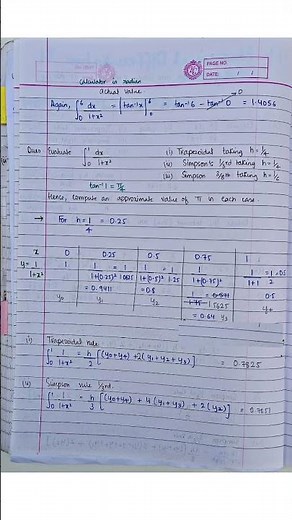 PAGE NO.
DATE: / /
Calculator in radian
Actual value
Again, ∫₀⁶ dx/1+x² = |tan⁻¹x|₀⁶ = tan⁻¹6 − tan⁻¹0 → 0 = 1.4056
Ques Evaluate ∫₀¹ dx/1+x² (i) Trapezoidal taking h=1/4
(ii) Simpson's 1/3rd taking h=1/4
(iii) Simpson 3/8th taking h=1/6
tan⁻¹1 = π/4
Hence, compute an approximate value of π in each case.
→ For h = 1/4 = 0.25
x 0 0.25 0.5 0.75 1
y = 1/1+x² 1 1/1+(0.25)² = 1/1.0625 = 0.9411 1/1+(0.5)² = 1/1.25 = 0.8 1/1+(0.75)² 1/1+1 = 1/2 = 0.5
1/1.5625 0.5
= 0.64
y₀ y₁ y₂ y₃ y₄
i) Trapezoidal rule
∫₀¹ 1/1+x² = h/2 [(y₀+y₄) + 2(y₁+y₂+y₃)] = 0.7825
(ii) Simpson rule 1/3rd.
∫₀¹ 1/1+x² = h/3 [(y₀+y₄) + 4(y₁+y₃) + 2(y₂)]